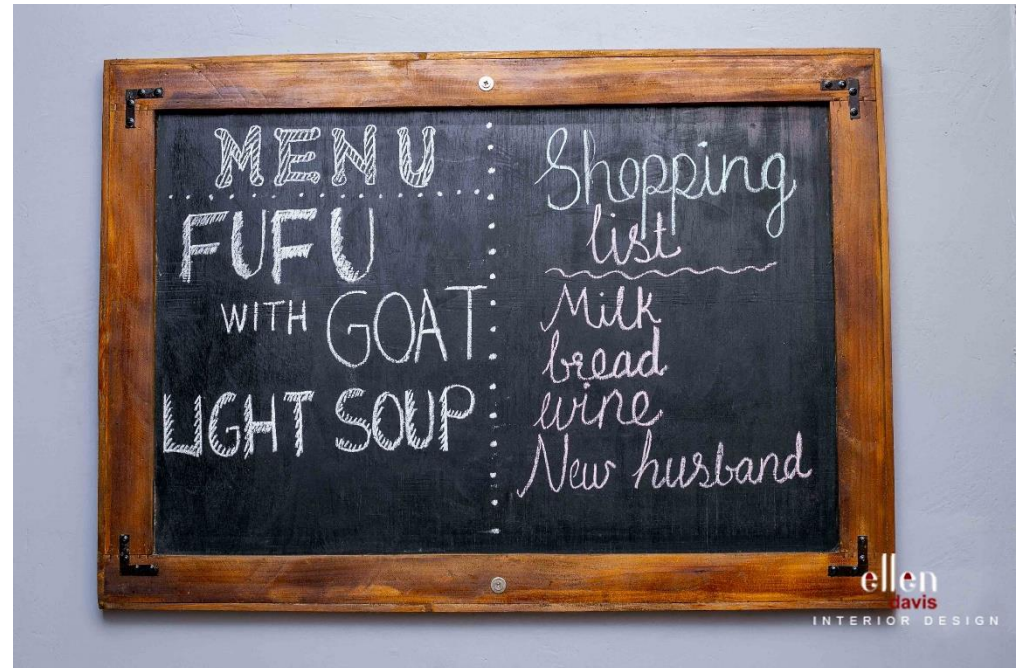 MENU
FUFU
WITH GOAT
LIGHT SOUP
Shopping
list
Milk
bread
wine
New husband
ellen
davis
INTERIOR DESIGN